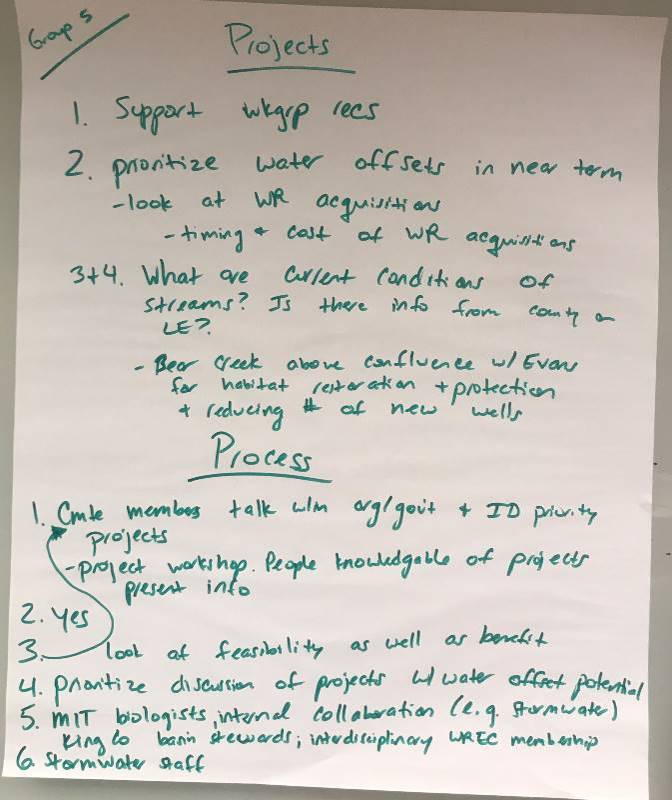 Group 5
Projects
1. Support wkgrp recs
2. prioritize water offsets in near term
- look at WR acquisitions
- timing + cost of WR acquisitions
3+4. What are current conditions of
streams? Is there info from county on
LE?
- Bear Creek above confluence w/ Evans
for habitat restoration + protection
+ reducing # of new wells
Process
1. Cmte members talk w/in org/gov't + ID priority
projects
- project workshop. People knowledgable of projects
present info
2. yes
3. look at feasibility as well as benefit
4. prioritize discussion of projects w/ water offset potential
5. MIT biologists, internal collaboration (e.g. stormwater)
King Co basin stewards; interdisciplinary WREC membership
6. Stormwater staff